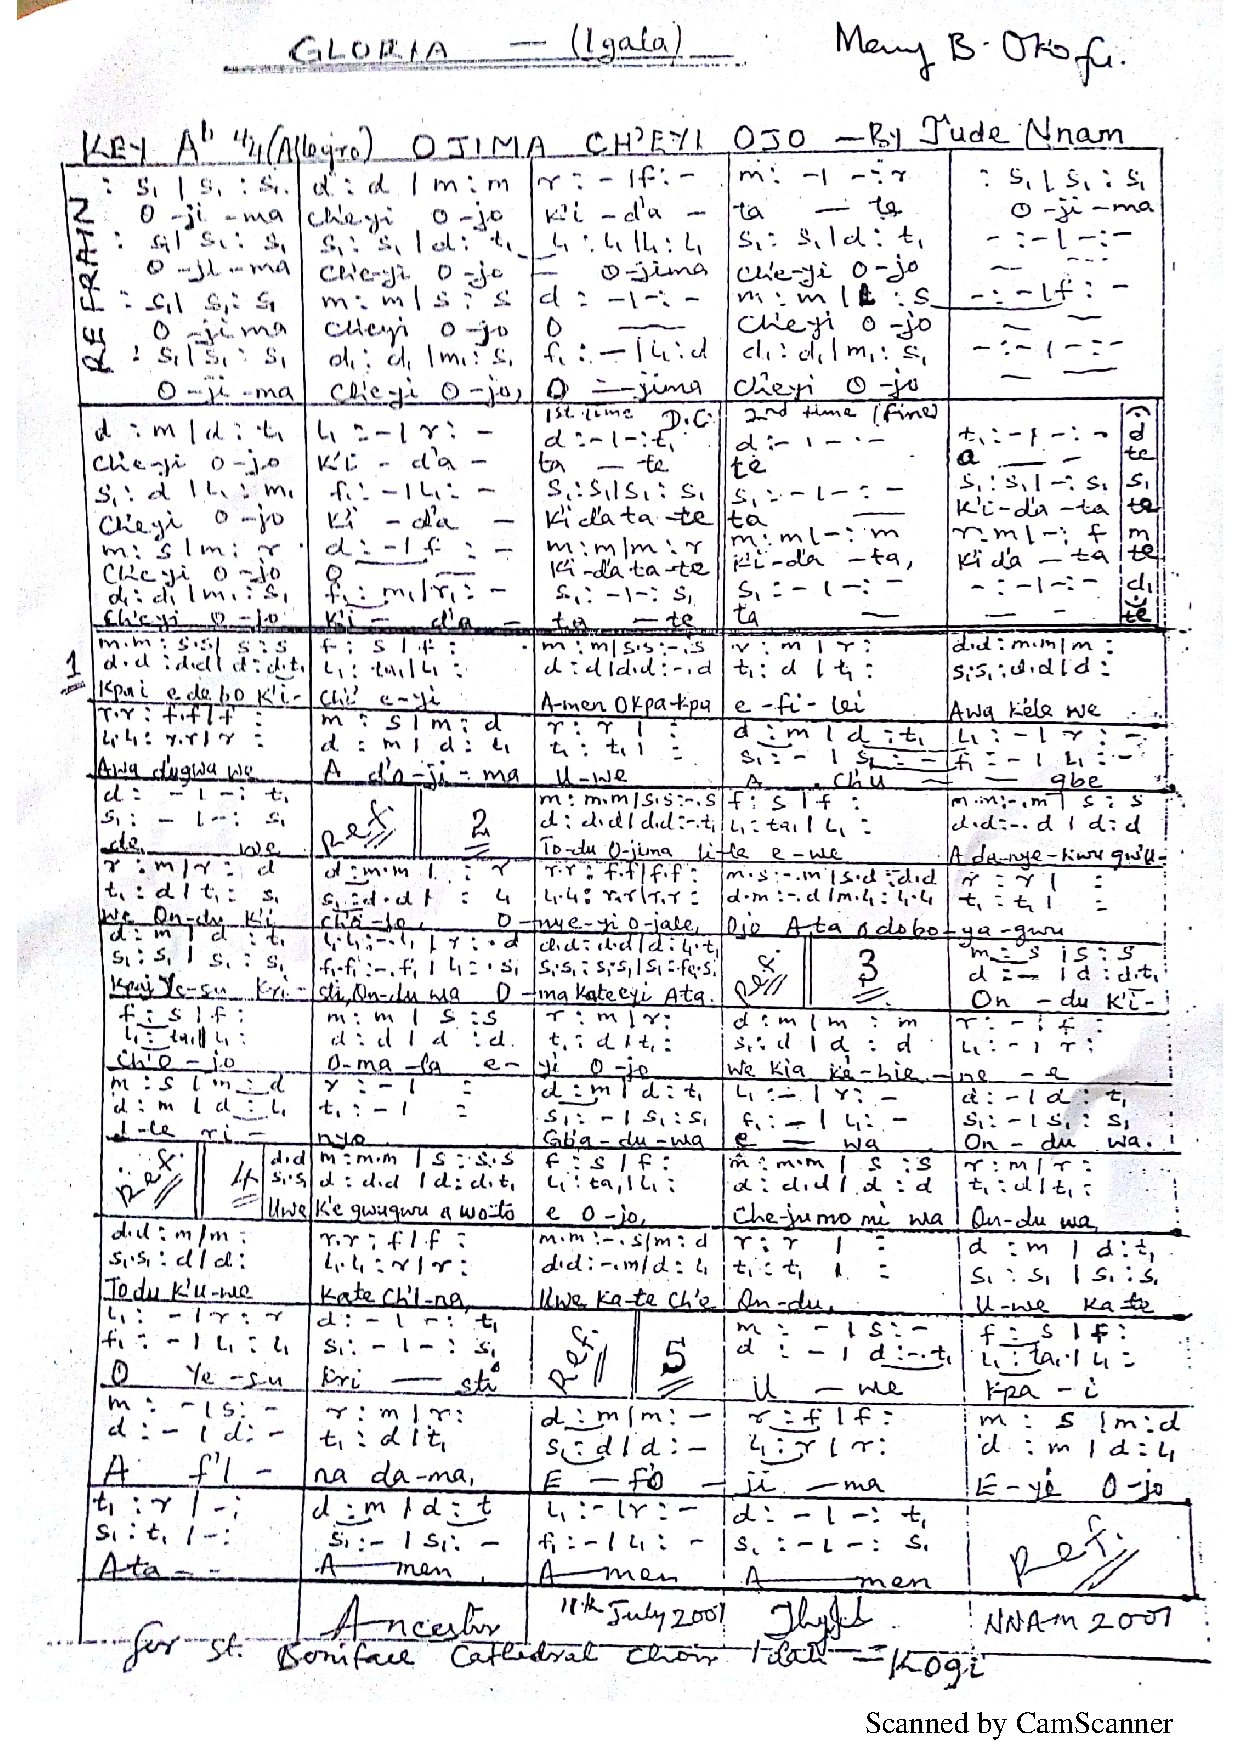 GLORIA — (Igala)
KEY Ab 4/4 (Allegro) OJIMA CH'EYI OJO — By Jude Nnam
REFRAIN
: s₁ | s₁ : s₁ d : d | m : m r : - | f : - m : - | - : r : s₁ | s₁ : s₁
O -ji -ma Ch'eyi O -jo K'i - d'a - ta — te O -ji -ma
: s₁ | s₁ : s₁ s₁ : s₁ | d : t₁ l₁ : l₁ | l₁ : l₁ s₁ : s₁ | d : t₁ - : - | - : -
O -ji -ma Ch'e-yi O -jo — O -jima Ch'e-yi O -jo
: s₁ | s₁ : s₁ m : m | s : s d : - | - : - - : - | f : -
O -jima Ch'eyi O -jo O — Ch'eyi O -jo
: s₁ | s₁ : s₁ d₁ : d₁ | m₁ : s₁ f₁ : - | l₁ : d d₁ : d₁ | m₁ : s₁ - : - | - : -
O -ji -ma Ch'e-yi O -jo, O — jima Ch'e-yi O -jo
1st time D.C. 2nd time (fine)
d : m | d : t₁ l₁ : - | r : - d : - | - : t₁ d : - | - : - t₁ : - | - : - d
Ch'e-yi O -jo K'i - d'a - ta — te te a — te
s₁ : d | l₁ : m₁ f₁ : - | l₁ : - s₁ : s₁ | s₁ : s₁ s₁ : - | - : - s₁ : s₁ | - : s₁ s₁
Ch'eyi O -jo Ki - d'a - Ki d'a ta -te ta — K'i -d'a -ta te
m : s | m : r d : - | f : - m : m | m : r m : m | - : m r : m | - : f m
Ch'e-yi O -jo O — Ki -da ta -te Ki -da -ta, Ki d'a - ta te
d₁ : d₁ | m₁ : s₁ f₁ : m₁ | r₁ : - s₁ : - | - : s₁ s₁ : - | - : - - : - | - : - d₁
Ch'eyi O -jo K'i - d'a - ta — te ta — te
1
m.m : s.s | s : s f : s | f : m : m | s.s : -.s r : m | r : d.d : m.m | m :
d.d : d.d | d : d.t₁ l₁ : ta₁ | l₁ : d : d | d.d : -.d t₁ : d | t₁ : s₁.s₁ : d.d | d :
Kpai e de bo K'i- Ch'e e-yi A-men Okpa-kpa e -fi -lei Awa kele we
r.r : f.f | f : m : s | m : d r : r | : d : m | d : t₁ l₁ : - | r : -
l₁.l₁ : r.r | r : d : m | d : l₁ t₁ : t₁ | : s₁ : - | s₁ : - f₁ : - | l₁ : -
Awa d'ugwu we A d'o -ji -ma U-we A Ch'u — gbe
d : - | - : t₁ Ref. 2 m : m.m | s.s : -.s f : s | f : m.m : -.m | s : s
s₁ : - | - : s₁ d : d.d | d.d : -.t₁ l₁ : ta₁ | l₁ : d.d : -.d | d : d
de we To-du O-jima li-le e-we A da-nye-kwu gw'u-
r : m | r : d d : m.m | : r r.r : f.f | f.f : m.s : -.m | s.d : d.d r : r | :
t₁ : d | t₁ : s₁ s₁ : d.d | : l₁ l₁.l₁ : r.r | r.r : d.m : -.d | m.l₁ : l₁.l₁ t₁ : t₁ | :
we On-du K'i cho-jo, O- nye-yi o-jale, Ojo Ata adobo-ya-gwu
d : m | d : t₁ l₁.l₁ : -.l₁ | r : .d d.d : d.d | d : l₁.t₁ Ref 3 m : s | s : s
s₁ : s₁ | s₁ : s₁ f₁.f₁ : -.f₁ | l₁ : .s₁ s₁.s₁ : s₁.s₁ | s₁ : fe₁.s₁ d : - | d : d.t₁
Kpai Ye-su Kri- sti, On-du wa O- ma kateeyi Ata. On -du K'i-
f : s | f : m : m | s : s r : m | r : d : m | m : m r : - | f :
l₁ : ta₁ | l₁ : d : d | d : d t₁ : d | t₁ : s₁ : d | d : d l₁ : - | r :
Ch'o -jo O-ma -la e- yi O -jo we kia ke-bie - ne - e
m : s | m : d r : - | : d : m | d : t₁ l₁ : - | r : - d : - | d : t₁
d : m | d : l₁ t₁ : - | : s₁ : - | s₁ : s₁ f₁ : - | l₁ : - s₁ : - | s₁ : s₁
d-le ri - nyo Gb'a-du-wa e — wa On - du wa.
Ref. 4 d.d m : m.m | s : s.s f : s | f : m : m.m | s : s r : m | r :
s₁.s₁ d : d.d | d : d.t₁ l₁ : ta₁ | l₁ : d : d.d | d : d t₁ : d | t₁ :
Uwe K'e gwugwu a wo-to e o-jo, Che-jumo mi wa On-du wa,
d.d : m | m : r.r : f | f : m.m : -.s | m : d r : r | : d : m | d : t₁
s₁.s₁ : d | d : l₁.l₁ : r | r : d.d : -.m | d : l₁ t₁ : t₁ | : s₁ : s₁ | s₁ : s₁
Todu K'u-we Kate Ch'I-na, Uwe ka-te Ch'e On-du, U-we ka te
l₁ : - | r : r d : - | - : t₁ Ref. 5 m : - | s : - f : s | f :
f₁ : - | l₁ : l₁ s₁ : - | - : s₁ d : - | d : -.t₁ l₁ : ta₁ | l₁ :
O Ye-su Kri — sti U - we Kpa - i
m : - | s : - r : m | r : d : m | m : - r : f | f : m : s | m : d
d : - | d : - t₁ : d | t₁ s₁ : d | d : - l₁ : r | r : d : m | d : l₁
A f'I - na da-ma, E — fo - ji -ma E -ye O -jo
t₁ : r | - : d : m | d : t l₁ : - | r : - d : - | - : t₁ Ref.
s₁ : t₁ | - : s₁ : - | s₁ : - f₁ : - | l₁ : - s₁ : - | - : s₁
Ata - - A—men, A—men A—men
Ancestor 11th July 2001 NNAM 2001
for St. Boniface Cathedral Choir Idah = Kogi
Scanned by CamScanner